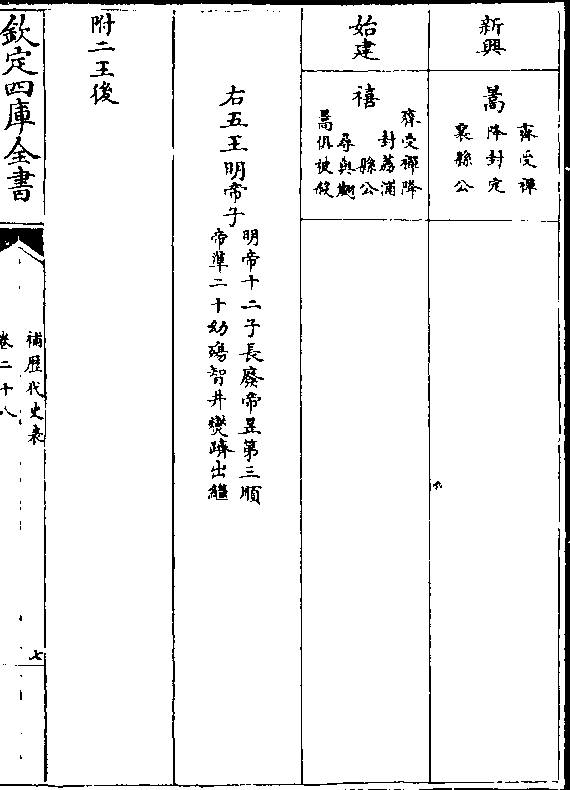 新興
嵩
齊受禪
降封定
襄縣公
始建
禧
齊受禪降
封荔浦
縣公
尋與翽
嵩俱被殺
右五王明帝子
明帝十二子長廢帝昱第三順
帝準二十幼殤智井爕躋出繼
附二王後
欽定四庫全書
補歴代史表
卷二十八
七